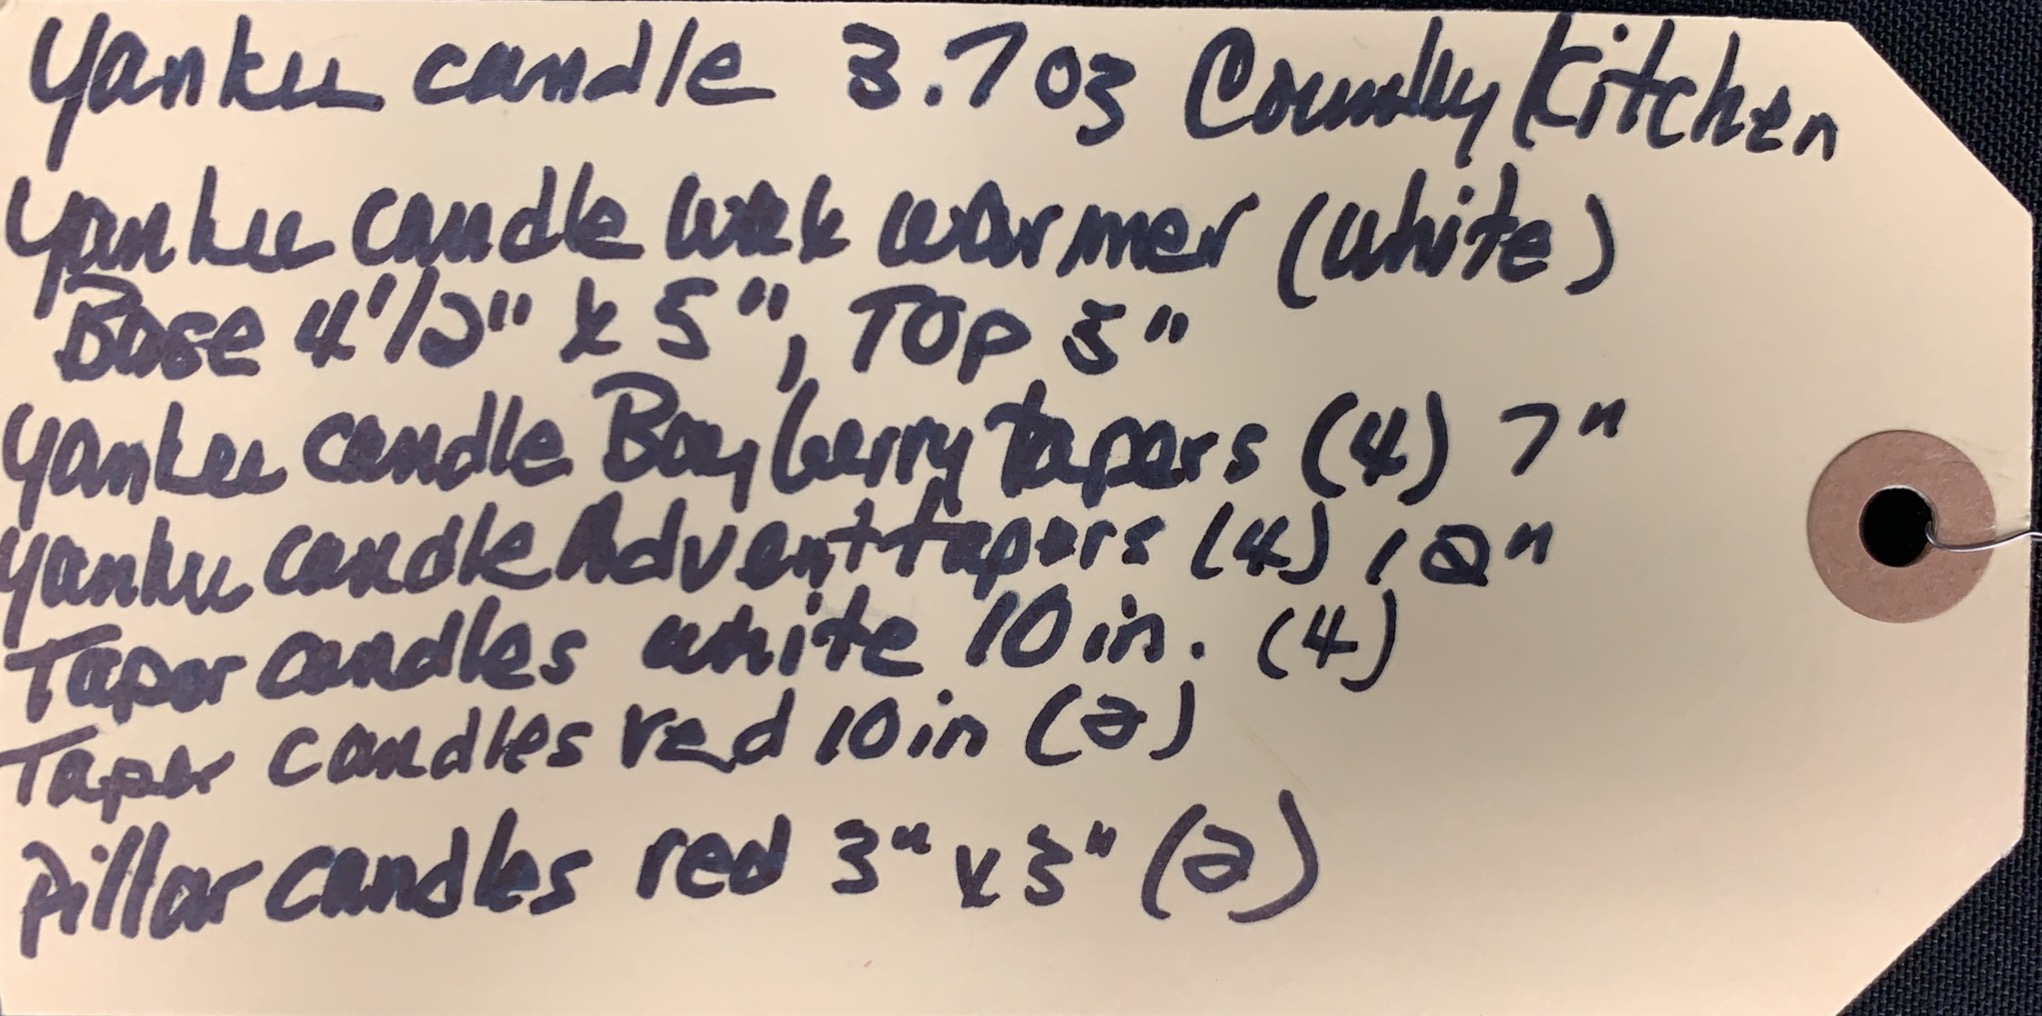 Yankee candle 3.7 oz Country Kitchen
Yankee candle wax warmer (white)
Base 4 1/2" x 5", Top 3"
Yankee candle Bayberry tapers (4) 7"
Yankee candle Advent tapers (4) 12"
Taper candles white 10 in. (4)
Taper candles red 10 in (2)
Pillar candles red 3" x 3" (2)